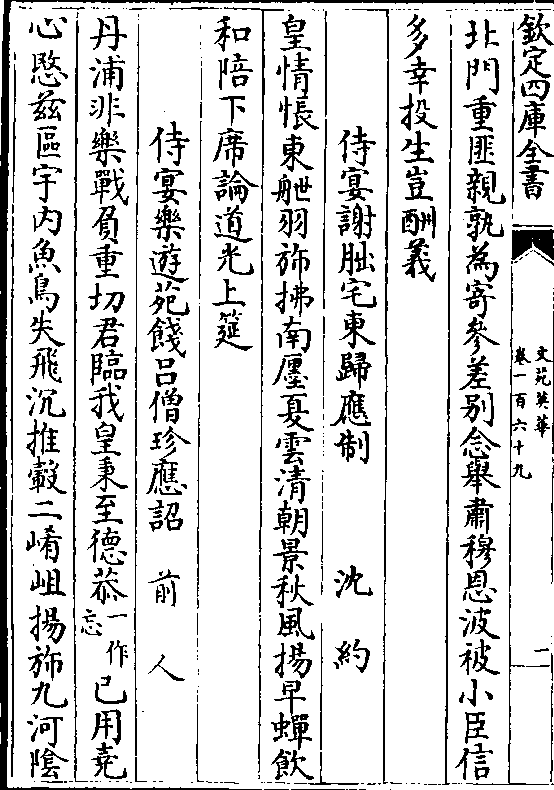 欽定四庫全書
文苑英華
卷一百六十九
二
北門重匪親孰為寄參差别念舉肅穆恩波被小臣信
多幸投生豈酬義
侍宴謝朏宅東歸應制 沈約
皇情悵東䑨羽斾拂南㕓夏雲清朝景秋風揚早蟬飲
和陪下席論道光上筵
侍宴樂遊苑餞吕僧珍應詔 前人
丹浦非樂戰負重切君臨我皇秉至德恭一作忘已用堯
心愍兹區宇内魚鳥失飛沉推轂二崤岨揚斾九河陰